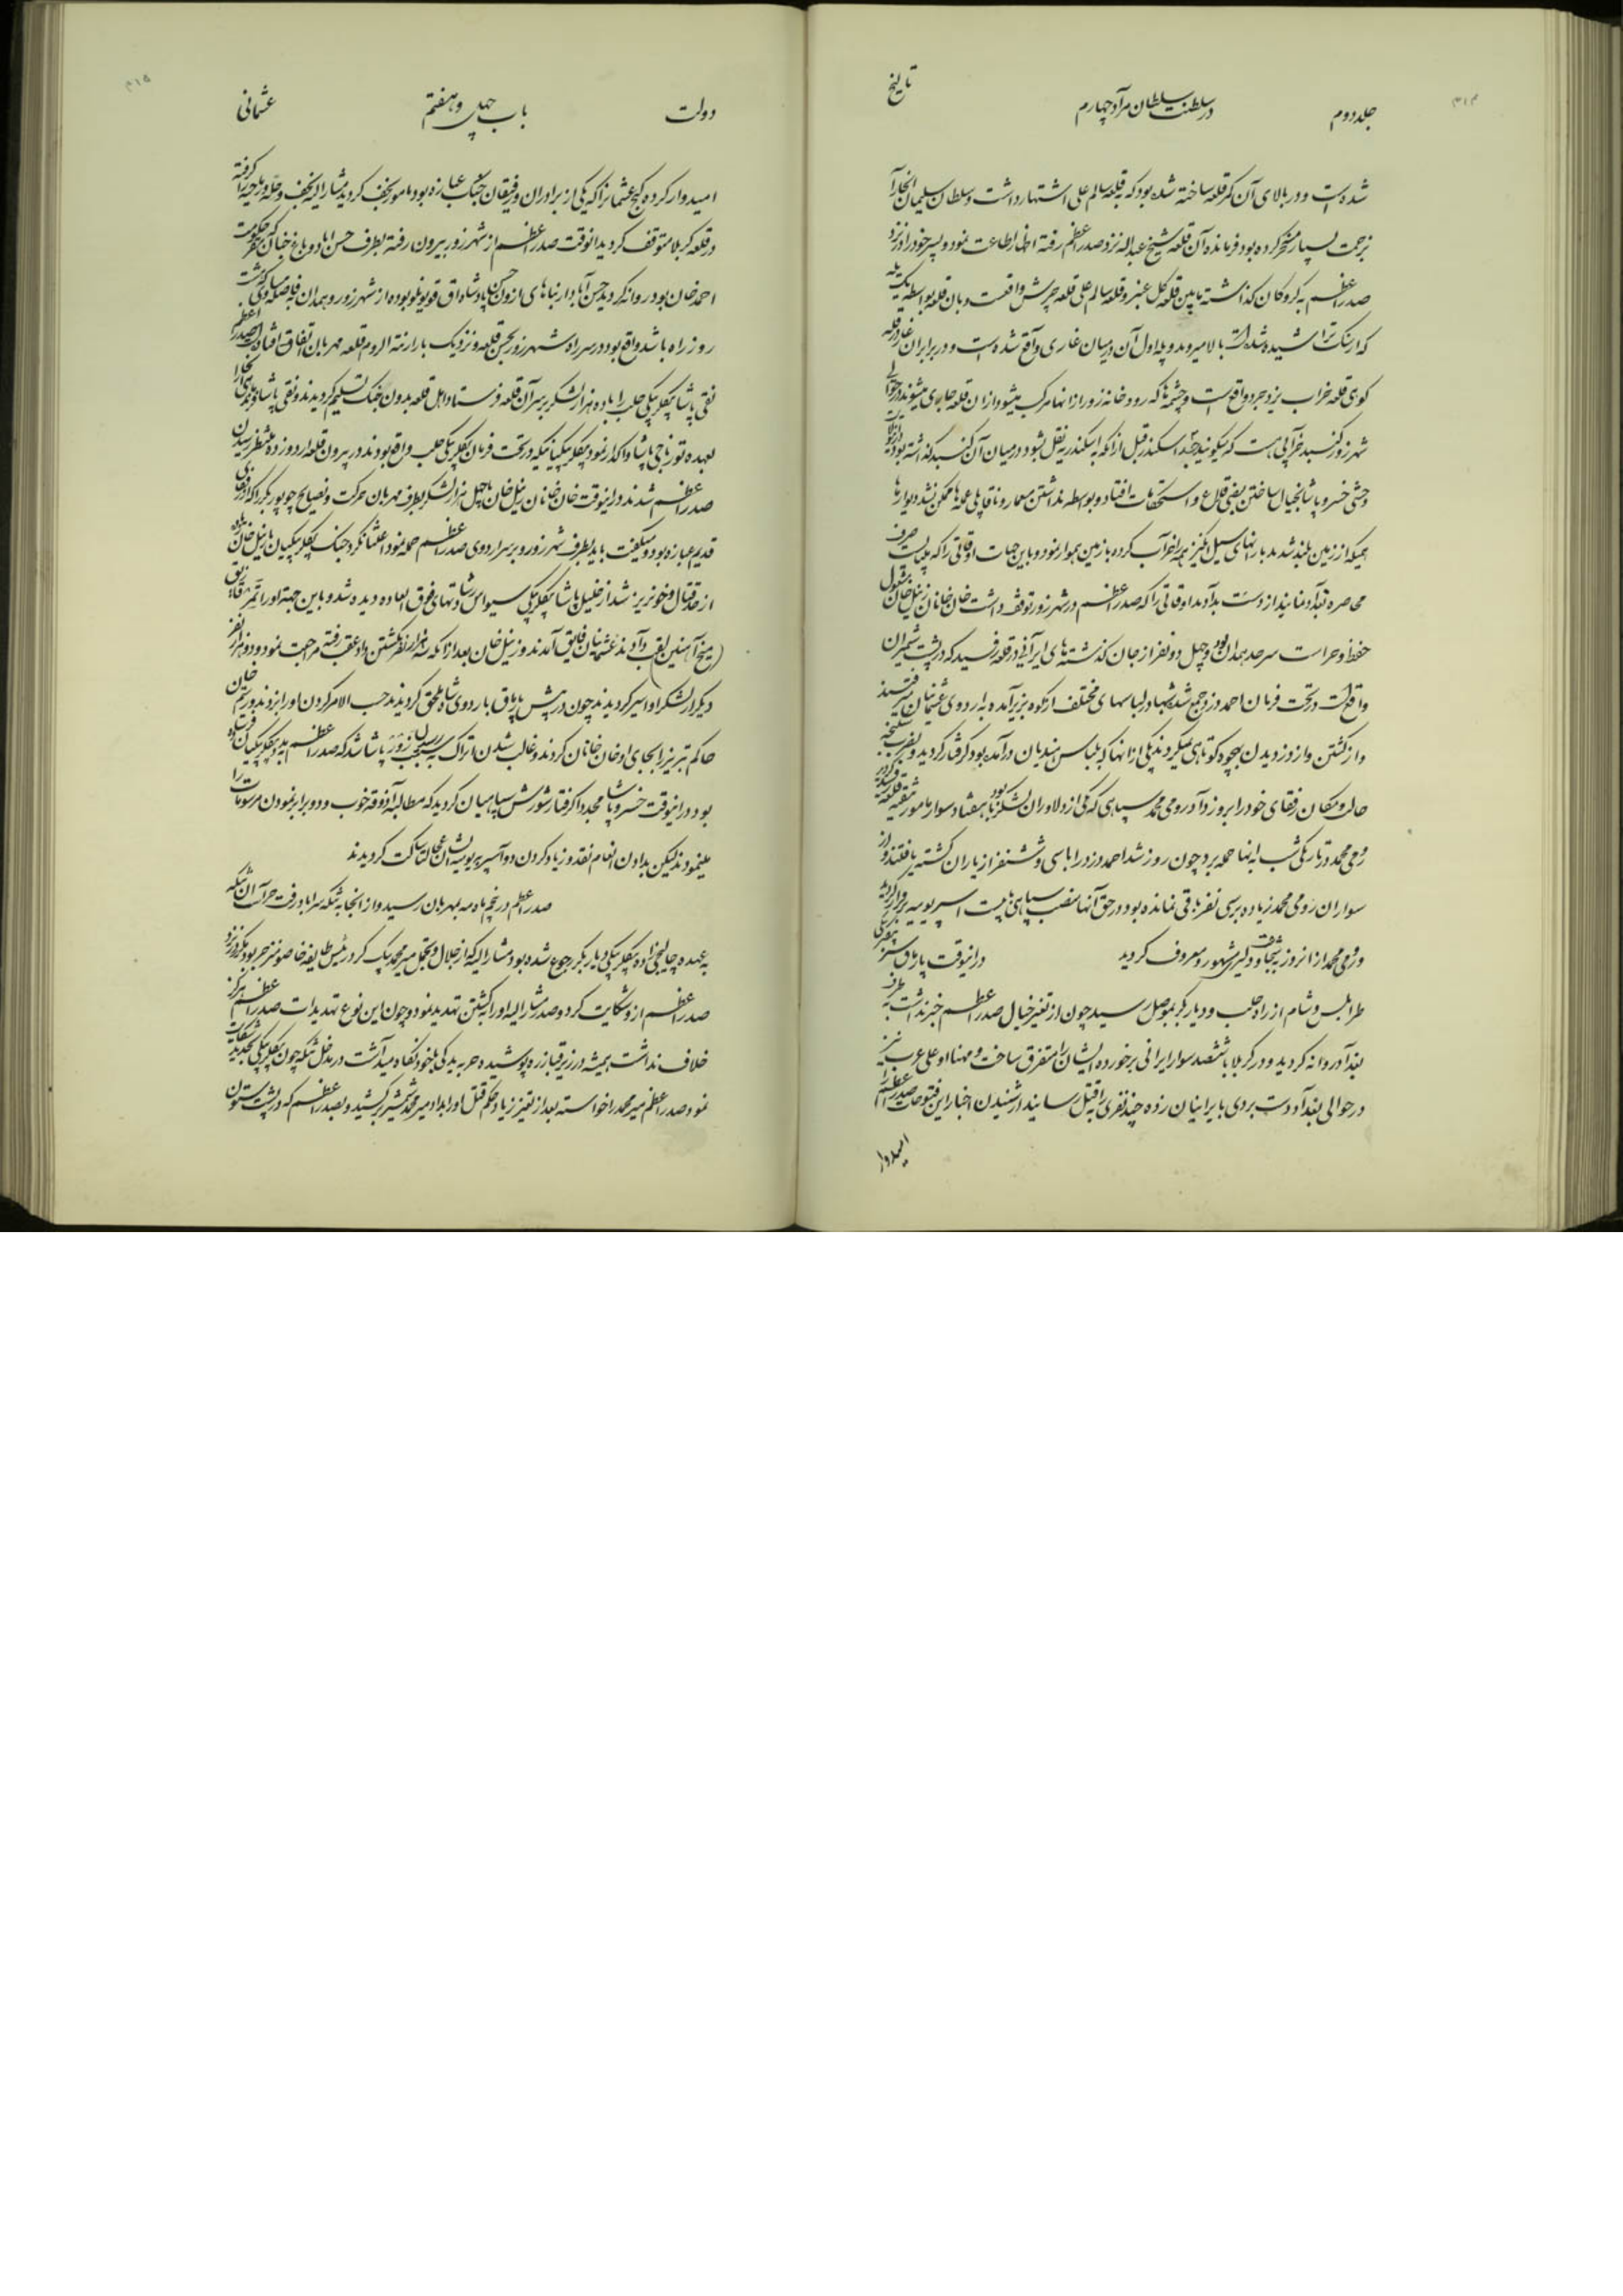 ۴۱۴
جلد دوم در سلطنت سلطان مراد چهارم تاریخ
شده است و در بالای آن کمر قلعه ساخته شده بود که به قلعه سالم علی اشتهار داشت و سلطان سلیمان آنجا را
بزحمت بسیار مسخر کرده بود فرمانده آن قلعه شیخ عبداله نزد صدر اعظم رفته اظهار اطاعت نمود و پسر خود را در نزد
صدر اعظم به گروکان گذاشته مابین قلعه گل عنبر و قلعه سالم علی قلعه واقعست و بآن قلعه بواسطه یک پله
که از سنگ تراشیده شده است بالا میروند و پله اول آن در میان غاری واقع شده است و در برابر آن غار قلعه
کوی قلعه خراب یزدجرد واقع است و چشمه که رودخانه زور از آنها مرکب میشود از آن قلعه جاری میشوند در حوالی
شهرزور گنبد خرابی هست که میگویند جسد اسکندر قبل از آنکه به اسکندریه نقل بشود در میان آن گنبد گذاشته بودند
وقتی خسرو پاشا بخیال ساختن بعضی قلاع و استحکامات افتاد و بواسطه نداشتن معمار و ناقابلی عمله ها ممکن نشد دیوارها
همینکه از زمین بلند شدند بارانهای سیل انگیز همه را خراب کرده با زمین هموار نمود و باین جهات اوقاتی را که میبایست صرف
محاصره بغداد نمایند از دست بدادند اوقاتی را که صدر اعظم در شهرزور توقف داشت خان خانان زینل خان مشغول
حفظ و حراست سرحد همدان بود و چهل دو نفر از جان گذشته های ایرانی در قلعه که در پشت شمیران
واقع است در تحت فرمان احمد دزد جمع شده شبها در لباسهای مختلف از کوه بزیر آمده به اردوی عثمانیان میرفتند
و از کشتن و از دزدیدن بهیچوجه کوتاهی نمیکردند یکی از آنها که بلباس هندیان درآمده بود گرفتار گردید و بضرب شکنجه
حال و مکان رفقای خود را بروز داد رومی محمد سپاهی که یکی از دلاوران لشکر بود با هفتاد سوار مامور
رومی محمد در تاریکی شب به آنها حمله برد چون روز شد احمد دزد را با سی و شش نفر از یاران کشته یافتند و از
سواران رومی محمد زیاده بر سی نفر باقی نمانده بود در حق آنها منصب سپاهی بیست اسپر یومیه برقرار گردید
و رومی محمد از آن روز به شجاعت و دلیری مشهور و معروف گردید در اینوقت
طرابلس و شام از راه حلب و دیاربکر بموصل رسید چون از تغییر خیال صدر اعظم خبر نداشت به طرف
بغداد روانه گردید و در کربلا با ششصد سوار ایرانی برخورده ایشان را متفرق ساخت و مهنا او علی عرب نیز
در حوالی بغداد دست بردی بایرانیان زده چند نفری را بقتل رسانیدند از شنیدن اخبار این فتوحات صدر اعظم را
امیدوار
۴۱۵
دولت باب چهل و هفتم عثمانی
امیدوار کرده گنج عثمان را که یکی از برادران و رفیقان جنگ عبازه بود مامور نجف گردید مشارالیه نجف و حله و رماحیه را گرفته
در قلعه کربلا متوقف گردید آنوقت صدر اعظم از شهرزور بیرون رفته بطرف حسن آباد و باغ که مقر حکومت
احمد خان بود روانه گردید حسن آباد از بناهای اوزون حسن پادشاه آق قویونلو بوده از شهرزور و همدان بفاصله مساوی
روز راه باشد واقع بود در سر راه شهرزور بحسن قلعه و نزدیک به ارزنة الروم قلعه مهربان اتفاق افتاده است صدر اعظم
نقی پاشا بگلربیگی حلب را با ده هزار لشکر بر سر آن قلعه فرستاد اهل قلعه بدون جنگ تسلیم گردیدند و نقی پاشا
بعهده توزچی پاشا واگذار نمود بگلربیگیانیکه در تحت فرمان بگلربیگی حلب واقع بودند در بیرون قلعه اردو زده منتظر رسیدن
صدر اعظم شدند در اینوقت خان خانان زینل خان با چهل هزار لشکر بطرف مهربان حرکت و نصایح چوپور
قدیم عبازه بود و میگفت باید بطرف شهرزور و بر سر اردوی صدر اعظم حمله نمود اعتنا نکرد جنگ بگلربیگیان با زینل خان
از حد قتال و خونریز شد از خلیل پاشا بگلربیگی سیواس رشادتهای فوق العاده دیده شد و باین جهة او را
(میخ آهنین) لقب دادند عثمانیان فایق آمدند و زینل خان بعد از آنکه سه هزار نفر بکشتن داد عقب رفته مراجعت نمود و دو هزار نفر
دیگر از لشکر او اسیر گردیدند چون در پیش باردوی شاه ملحق گردیدند حسب الامر گردن او را بزدند و رستم خان
حاکم تبریز را بجای او خان خانان کردند و غالب شدن اتراک به سبب رسیدن پاشا شد که صدر اعظم به مدد بگلربیگیان فرستاده
بود در اینوقت خسرو پاشا مجددا گرفتار شورش سپاهیان گردید که مطالبه آذوقه خوب و دو برابر نمودن مرسومات را
مینمودند لیکن بدادن انعام نقد و زیاد کردن دو آسپر بر یومیه ایشان عجالتا ساکت گردیدند
صدر اعظم در پنجم ماه مه بمهربان رسید و از آنجا به رفت حراست آن تنکه
به عهده چالجی زاده بگلربیگی دیاربکر رجوع شده بود مشارالیه که از جلال و تجمل میر محمد بیک کرد رئیس طایفه بود نزد
صدر اعظم از او شکایت کرد و صدر مشارالیه او را به کشتن تهدید نمود و چون این نوع تهدیدات صدر اعظم هرگز
خلاف نداشت همیشه در زیر قبا زره پوشیده و حربه یدکی با خود نگاه میداشت در مدخل تنکه چون بگلربیگی تجدید شکایت
نمود صدر اعظم میر محمد را خواسته بعد از تغییر زیاد حکم قتل او را بداد میر محمد شمشیر برکشید و بصدر اعظم که در پشت ستون